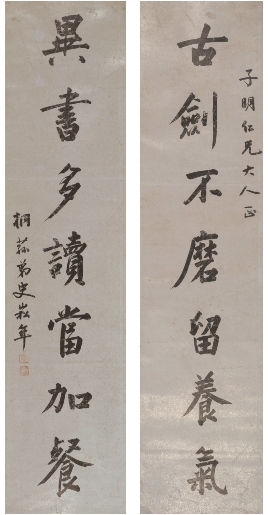 子明仁兄大人正
古劍不磨留養氣
異書多讀當加餐
桐蓀弟史崧年